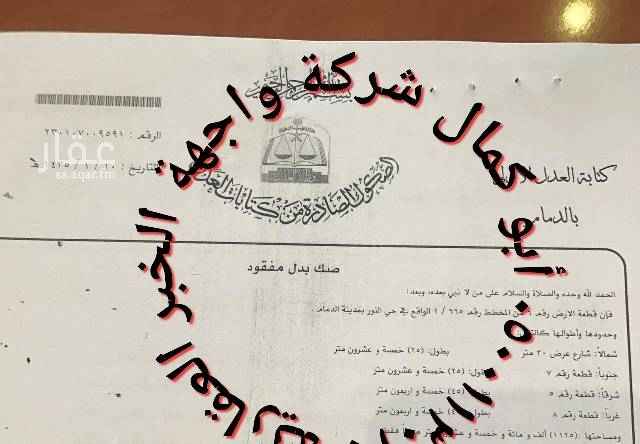 بسم الله الرحمن الرحيم
كتابة العدل
بالدمام
الصكوك الصادرة من كتابات العدل
الرقم :
التاريخ :
عقار
sa.aqar.fm
أبو كمال شركة واجهة الخبر العقارية
صك بدل مفقود
الحمد لله وحده والصلاة والسلام على من لا نبي بعده، وبعد:
فإن قطعة الارض رقم من المخطط رقم ٦٦٥ / ١ الواقع في حي النور بمدينة الدمام.
وحدودها وأطوالها كالتالي
شمالاً: شارع عرض ٢٠ متر بطول: (٢٥) خمسة و عشرون متر
جنوباً: قطعة رقم ٧ بطول: (٢٥) خمسة و عشرون متر
شرقاً: قطعة رقم ٥ بطول: (٤٥) خمسة و اربعون متر
غرباً: قطعة رقم ٨ بطول: (٤٥) خمسة و اربعون متر
ومساحتها: (١١٢٥) ألف و مائة و خمسة و عشرون متر مربعا فقط